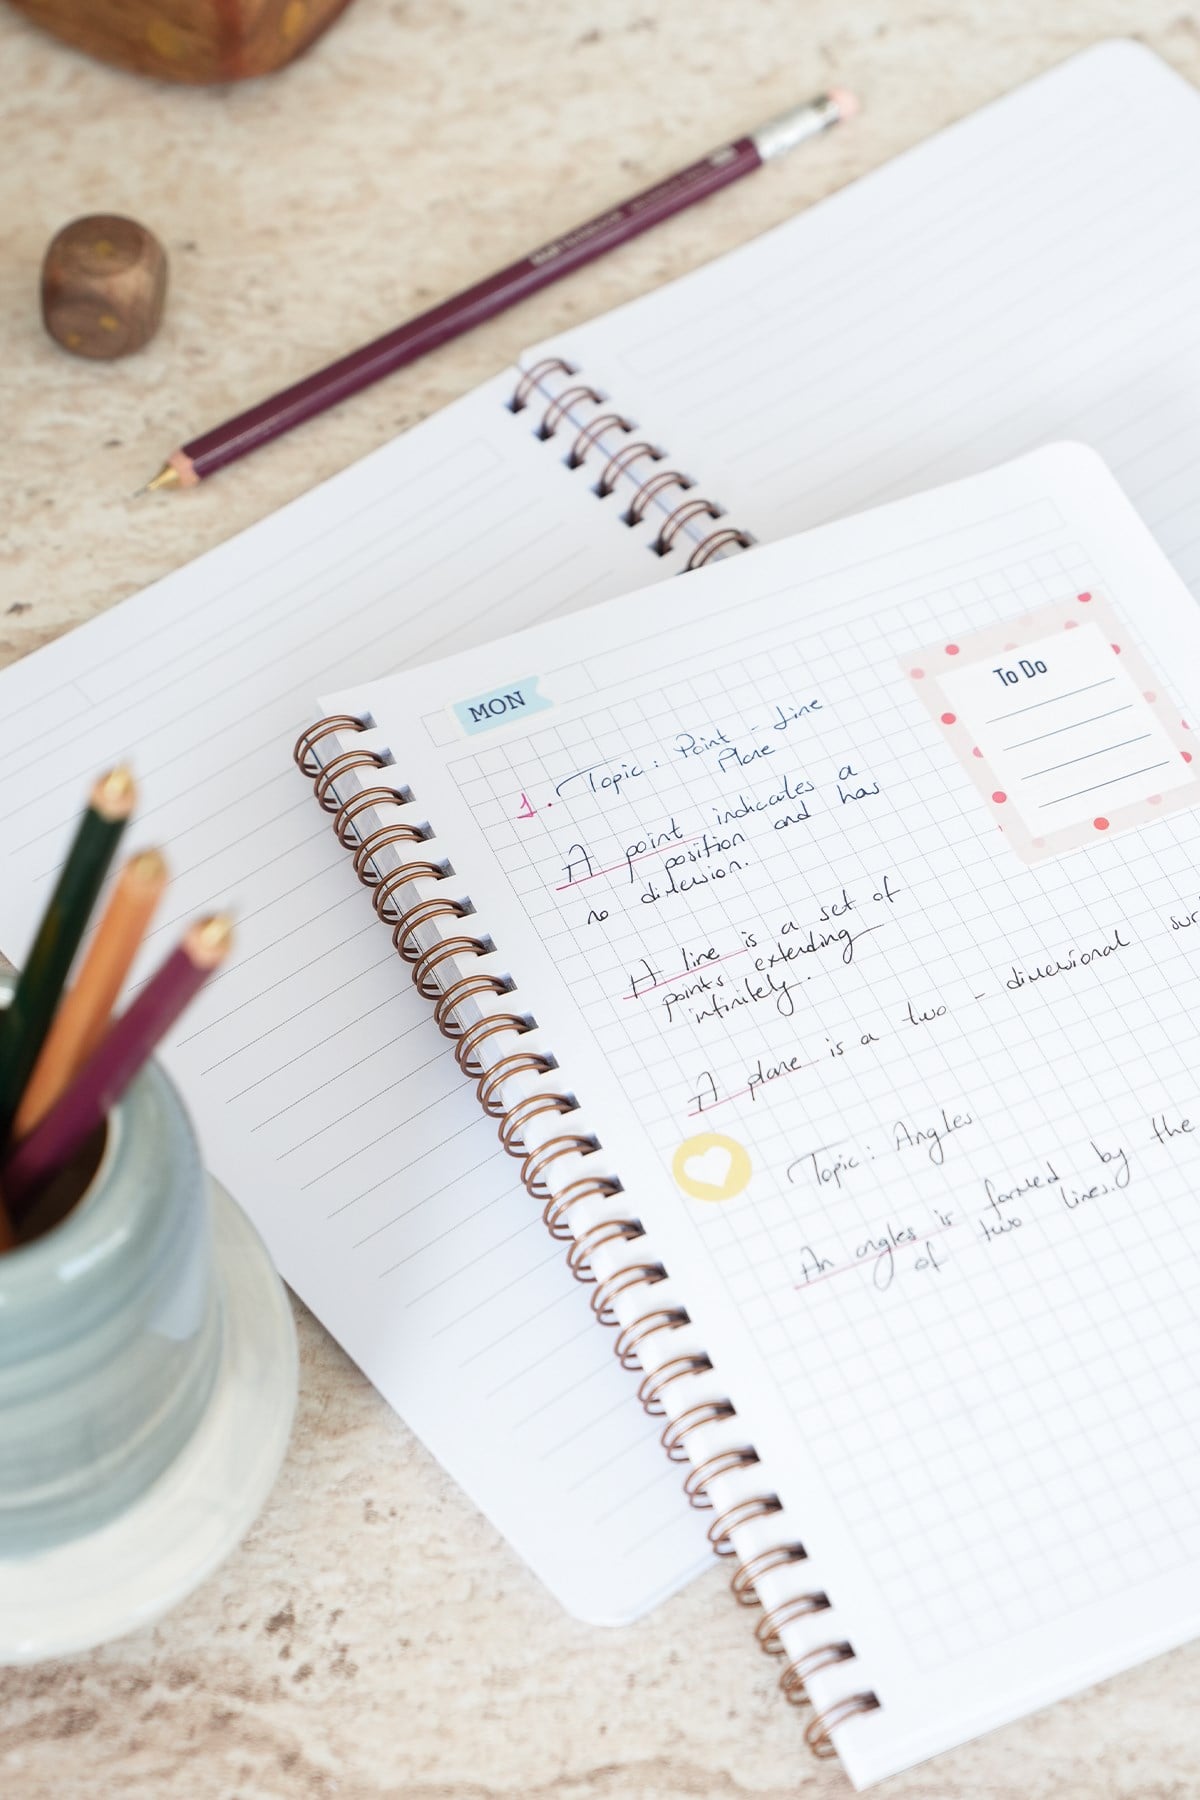 MON
To Do
1. Topic: Point - Line
Plane
A point indicates a
position and has
no dimension.
A line is a set of
points extending
infinitely.
A plane is a two - dimensional sur
Topic: Angles
An angles is formed by the
of two lines.